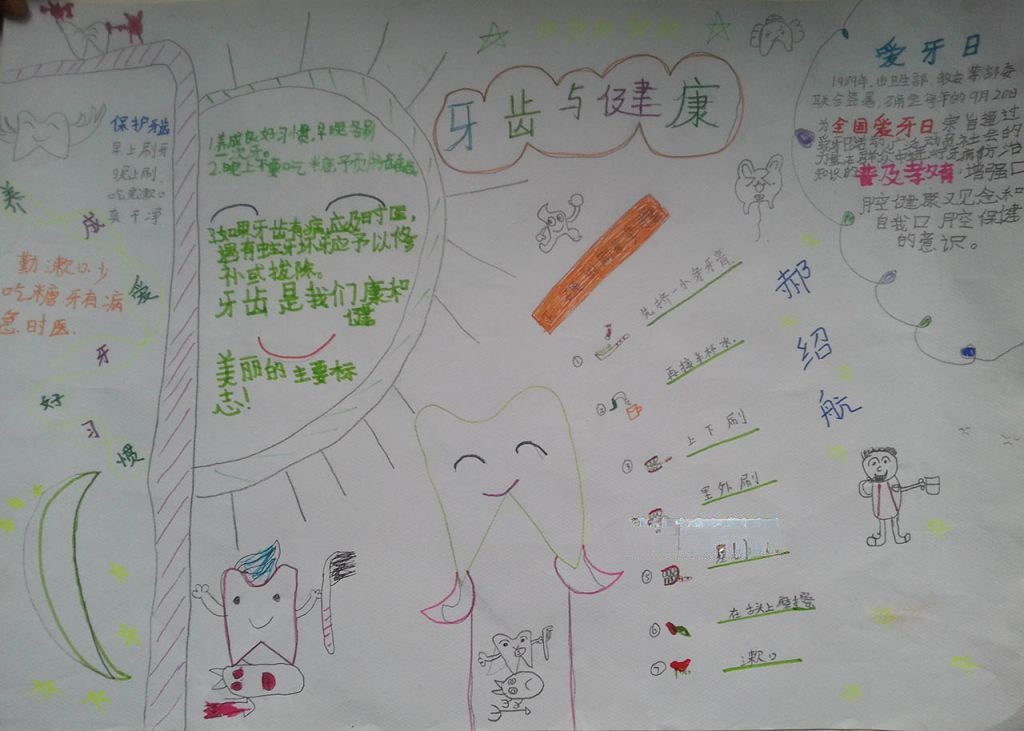 牙齿与健康
保护牙齿
早上刷牙
晚上刷
吃完漱口
爽干净
养成爱牙好习惯
勤漱口少
吃糖牙有病
急时医.
1.养成良好习惯,早晚各刷
一次牙。
2.晚上不要吃
3.如果牙齿有病,应及时医,
遇有虫牙坏牙应予以修
补或拔除。
牙齿是我们康和
健
美丽的主要标
志!
①先挤一小条牙膏
②再接半杯水.
③上下刷
里外刷
⑤
⑥在舌头上摩擦
⑦漱口
郝绍航
爱牙日
1989年,由卫生部、教委等部委
联合签署,确定每年的9月20日
为全国爱牙日,宗旨通过
爱牙日活动,动员社会的
知识的普及教育,增强口
腔健康观念和
自我口腔保健
的意识。